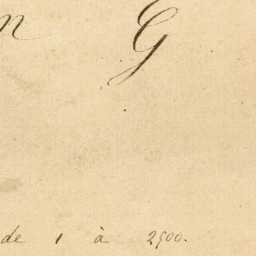 n G
de 1 à 2500.